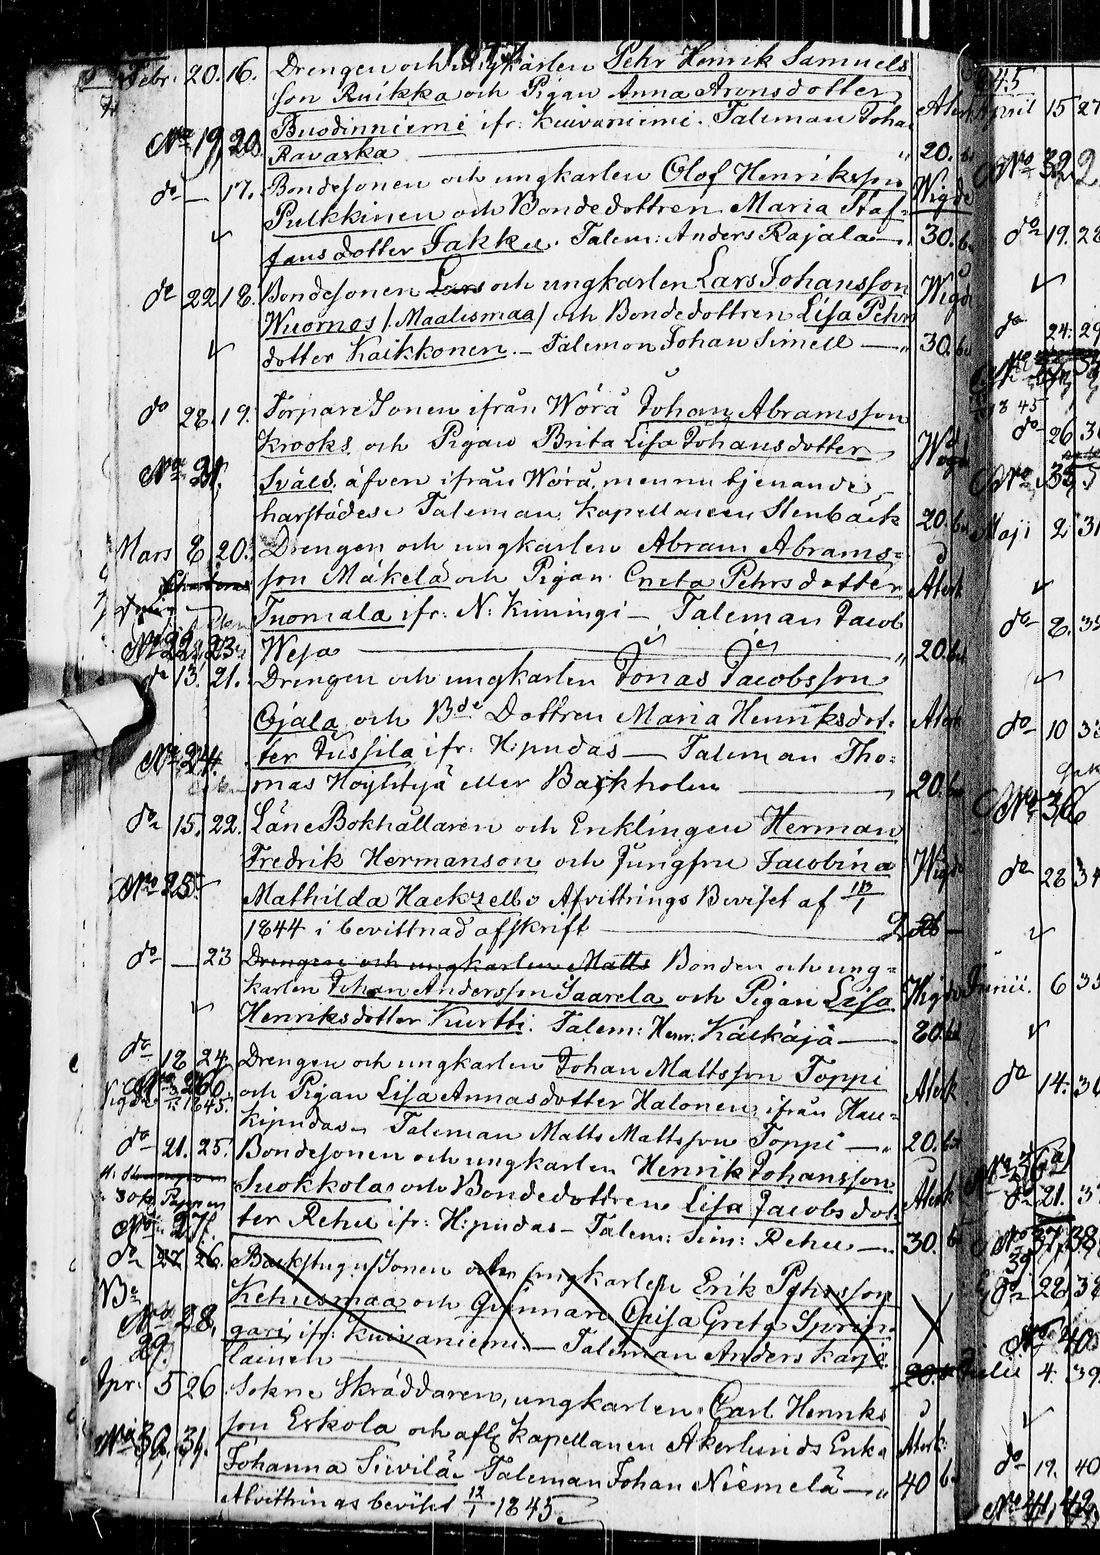 Febr. 20. 16. Drengen och ungkarlen Pehr Henrik Samuels
son Ruikka och Pigan Anna Aronsdotter
Buodinniemi ifr. Kuivaniemi. Taleman Johan
No 19, 20. Ravaska 20.
do — 17. Bondesonen och ungkarlen Olof Henriksson Wigde
Pulkkinen och Bondedottren Maria Staf-
fansdotter Jakku. Talem: Anders Rajala — 30.
do 22 18. Bondesonen Lars och ungkarlen Lars Johansson Wigde
Wuornos /Maalismaa/ och Bondedottren Lisa Pehrs
dotter Kaikkonen. — Taleman Johan Simell — 30.
do 28. 19. Torpare Sonen ifrån Wörå Johan Abramsson
Krooks och Pigan Brita Lisa Johansdotter
No 21. Sväls, äfven ifrån Wörå, mennu tjenande
härstädes Taleman Kapellanen Stenbäck 20.
Mars 8 20. Drengen och ungkarlen Abram Abrams=
son Mäkelä och Pigan Greta Pehrsdotter Aterk
Tuomala ifr. N. Kimingi — Taleman Jacob
No 22, 23. Wesa 20.
do 13. 21. Drengen och ungkarlen Jonas Jacobsson
Ojala och Bde Dottren Maria Henriksdot- Aterk
No 24. ter Jussila ifr. H:pudas — Taleman Tho=
mas Höyhtyä eller Backholm 20.
do 15. 22. Läne Bokhållaren och Enklingen Herman
Fredrik Hermanson och Jungfru Jacobina Wigde
No 25. Mathilda Hackzell Afvittrings Beviset af
1844 i bevittnad afskrift
do — 23 Drengen och ungkarlen Matts Bonden och ung-
karlen Johan Andersson Saarela och Pigan Lisa Wigde
Henriksdotter Kurtti. Talem: Henr. Käckäjä — 30.
do 18 24. Drengen och ungkarlen Johan Mattsson Toppi
No 26. och Pigan Lisa Annasdotter Halonen, ifrån Hau- Aterk
Kipudas — Taleman Matts Mattsson Toppi — 20.
do 21. 25. Bondesonen och ungkarlen Henrik Johansson
Suokkola och Bondedottren Lisa Jacobsdot- Aterk
No 27. ter Rehu ifr: H:pudas — Talem: Sim: Rehu — 30.
do 27 26. Backstugu Sonen och ungkarlen Erik Pehrsson
Kehusmaa och Qvinnan Caisa Greta Sprin-
No 28, gari, ifr: Kuivaniemi. — Taleman Anders Karje
29. lainen 20.
Apr. 5 26 Sokne Skräddaren, ungkarlen Carl Henriks
son Eskola och afl. Kapellanen Åkerlunds Enka Aterk:
No 30, 31. Johanna Siivilä Taleman Johan Niemelä — 40
Afvittrings beviset 12/1 1845.
1845
April 15 27
No 32
do 19. 28
do 24. 29
do 26. 30
No 35
Maji 2. 31
do 8. 32
do 10 33
No 36
do 28 34
Junii. 6 35
do 14. 36
do 21. 37
No 37, 38
39
do 28, 38
No 40
Julii 4. 39
do 19. 40
No 41, 42